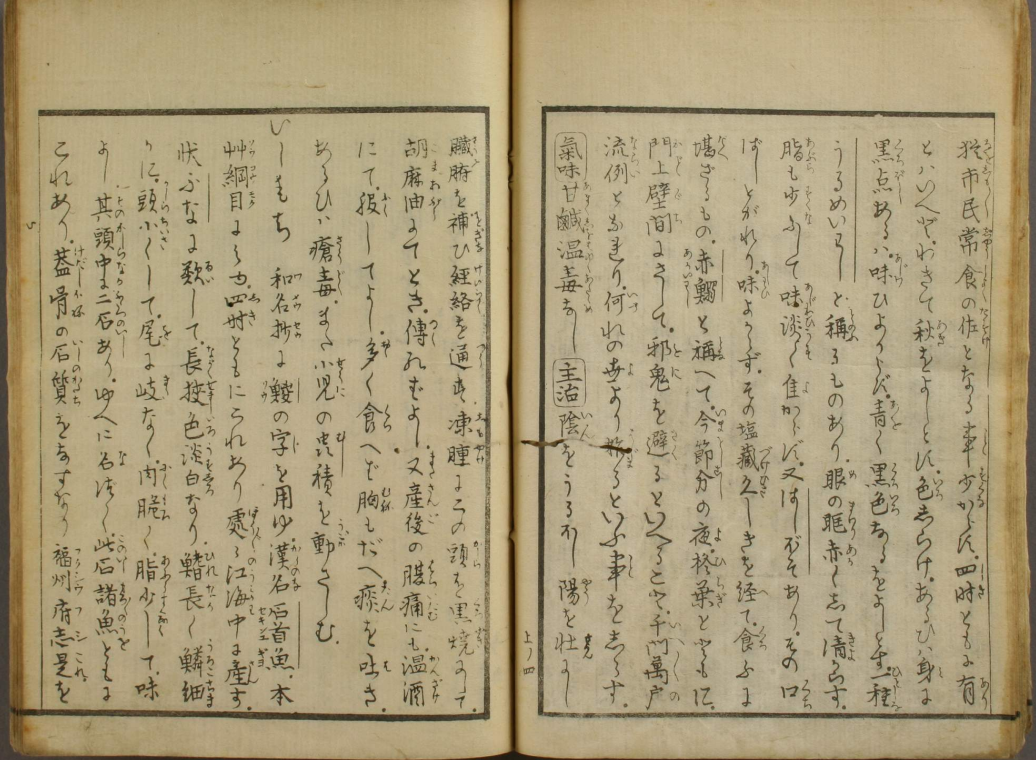 猶市民常食の佐となる事少からず。四時ともに有
といへど。わきて秋をよしとす。色志らけ。あるひハ身に
黒点あるハ。味ひよからず。青く黒色なるをよしとす。一種
うるめいわし と稱るものあり。眼の眶赤く志て清からす。
脂も少ふして味淡く佳からず。又はしぶそあり。その口
はしとがれり。味よからず。その塩藏久しきを経て。食ふに
堪ざるもの。赤鰯と稱へて。今節分の夜。柊葉とともに
門上壁間にさして。邪鬼を避るといへること。千門萬户
流例となれり。何れの世より始るといふ事を志らす。
氣味甘鹹温毒なし 主治陰をうるおし 陽を壮にし
上ノ四
臓腑を補ひ経絡を通す。凍腫にこの頭を黒焼にして。
胡麻油にてとき。傅れバよし。又産後の腹痛にも。温酒
にて。服してよし。多く食へば胸もだへ痰を吐き。
あるひハ瘡毒。また小児の虫積を動さしむ。
いしもち 和名抄に鯼の字を用ゆ漢名石首魚。本
艸綱目に出。四時ともにこれあり 處々江海中に産す。
状ふなに類して。長挾色淡白なり。鰭長く 鱗細
かに。頭小くして。尾に岐なく。肉脆く。脂少して。味
よし。其頭中に二石あり。ゆへに名つく 此石諸魚ともに
これあり。葢骨の石質をなすなり 福州府志是を